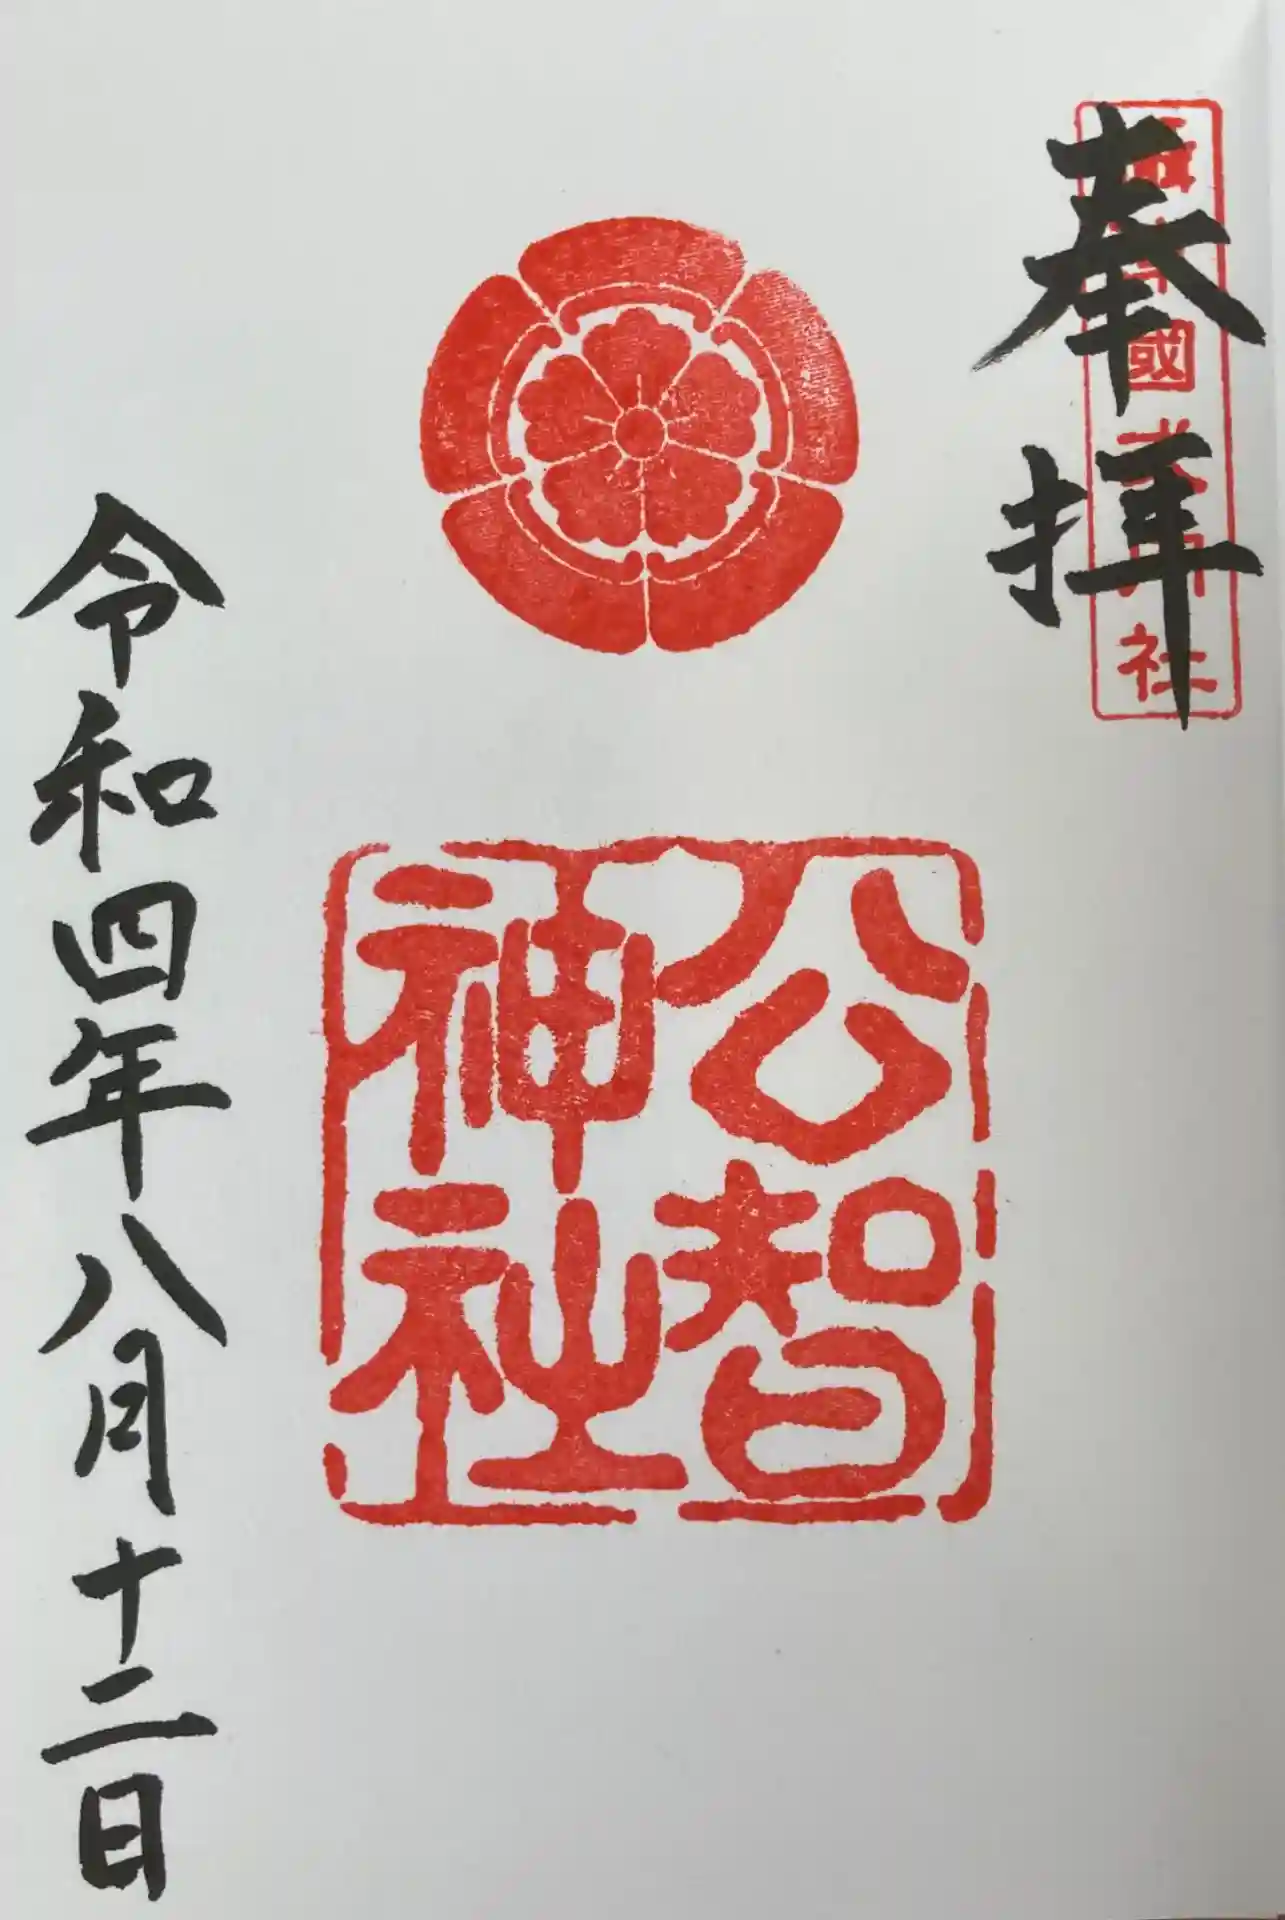 奉拝
攝津國式内社
公智
神社
令和四年八月十二日